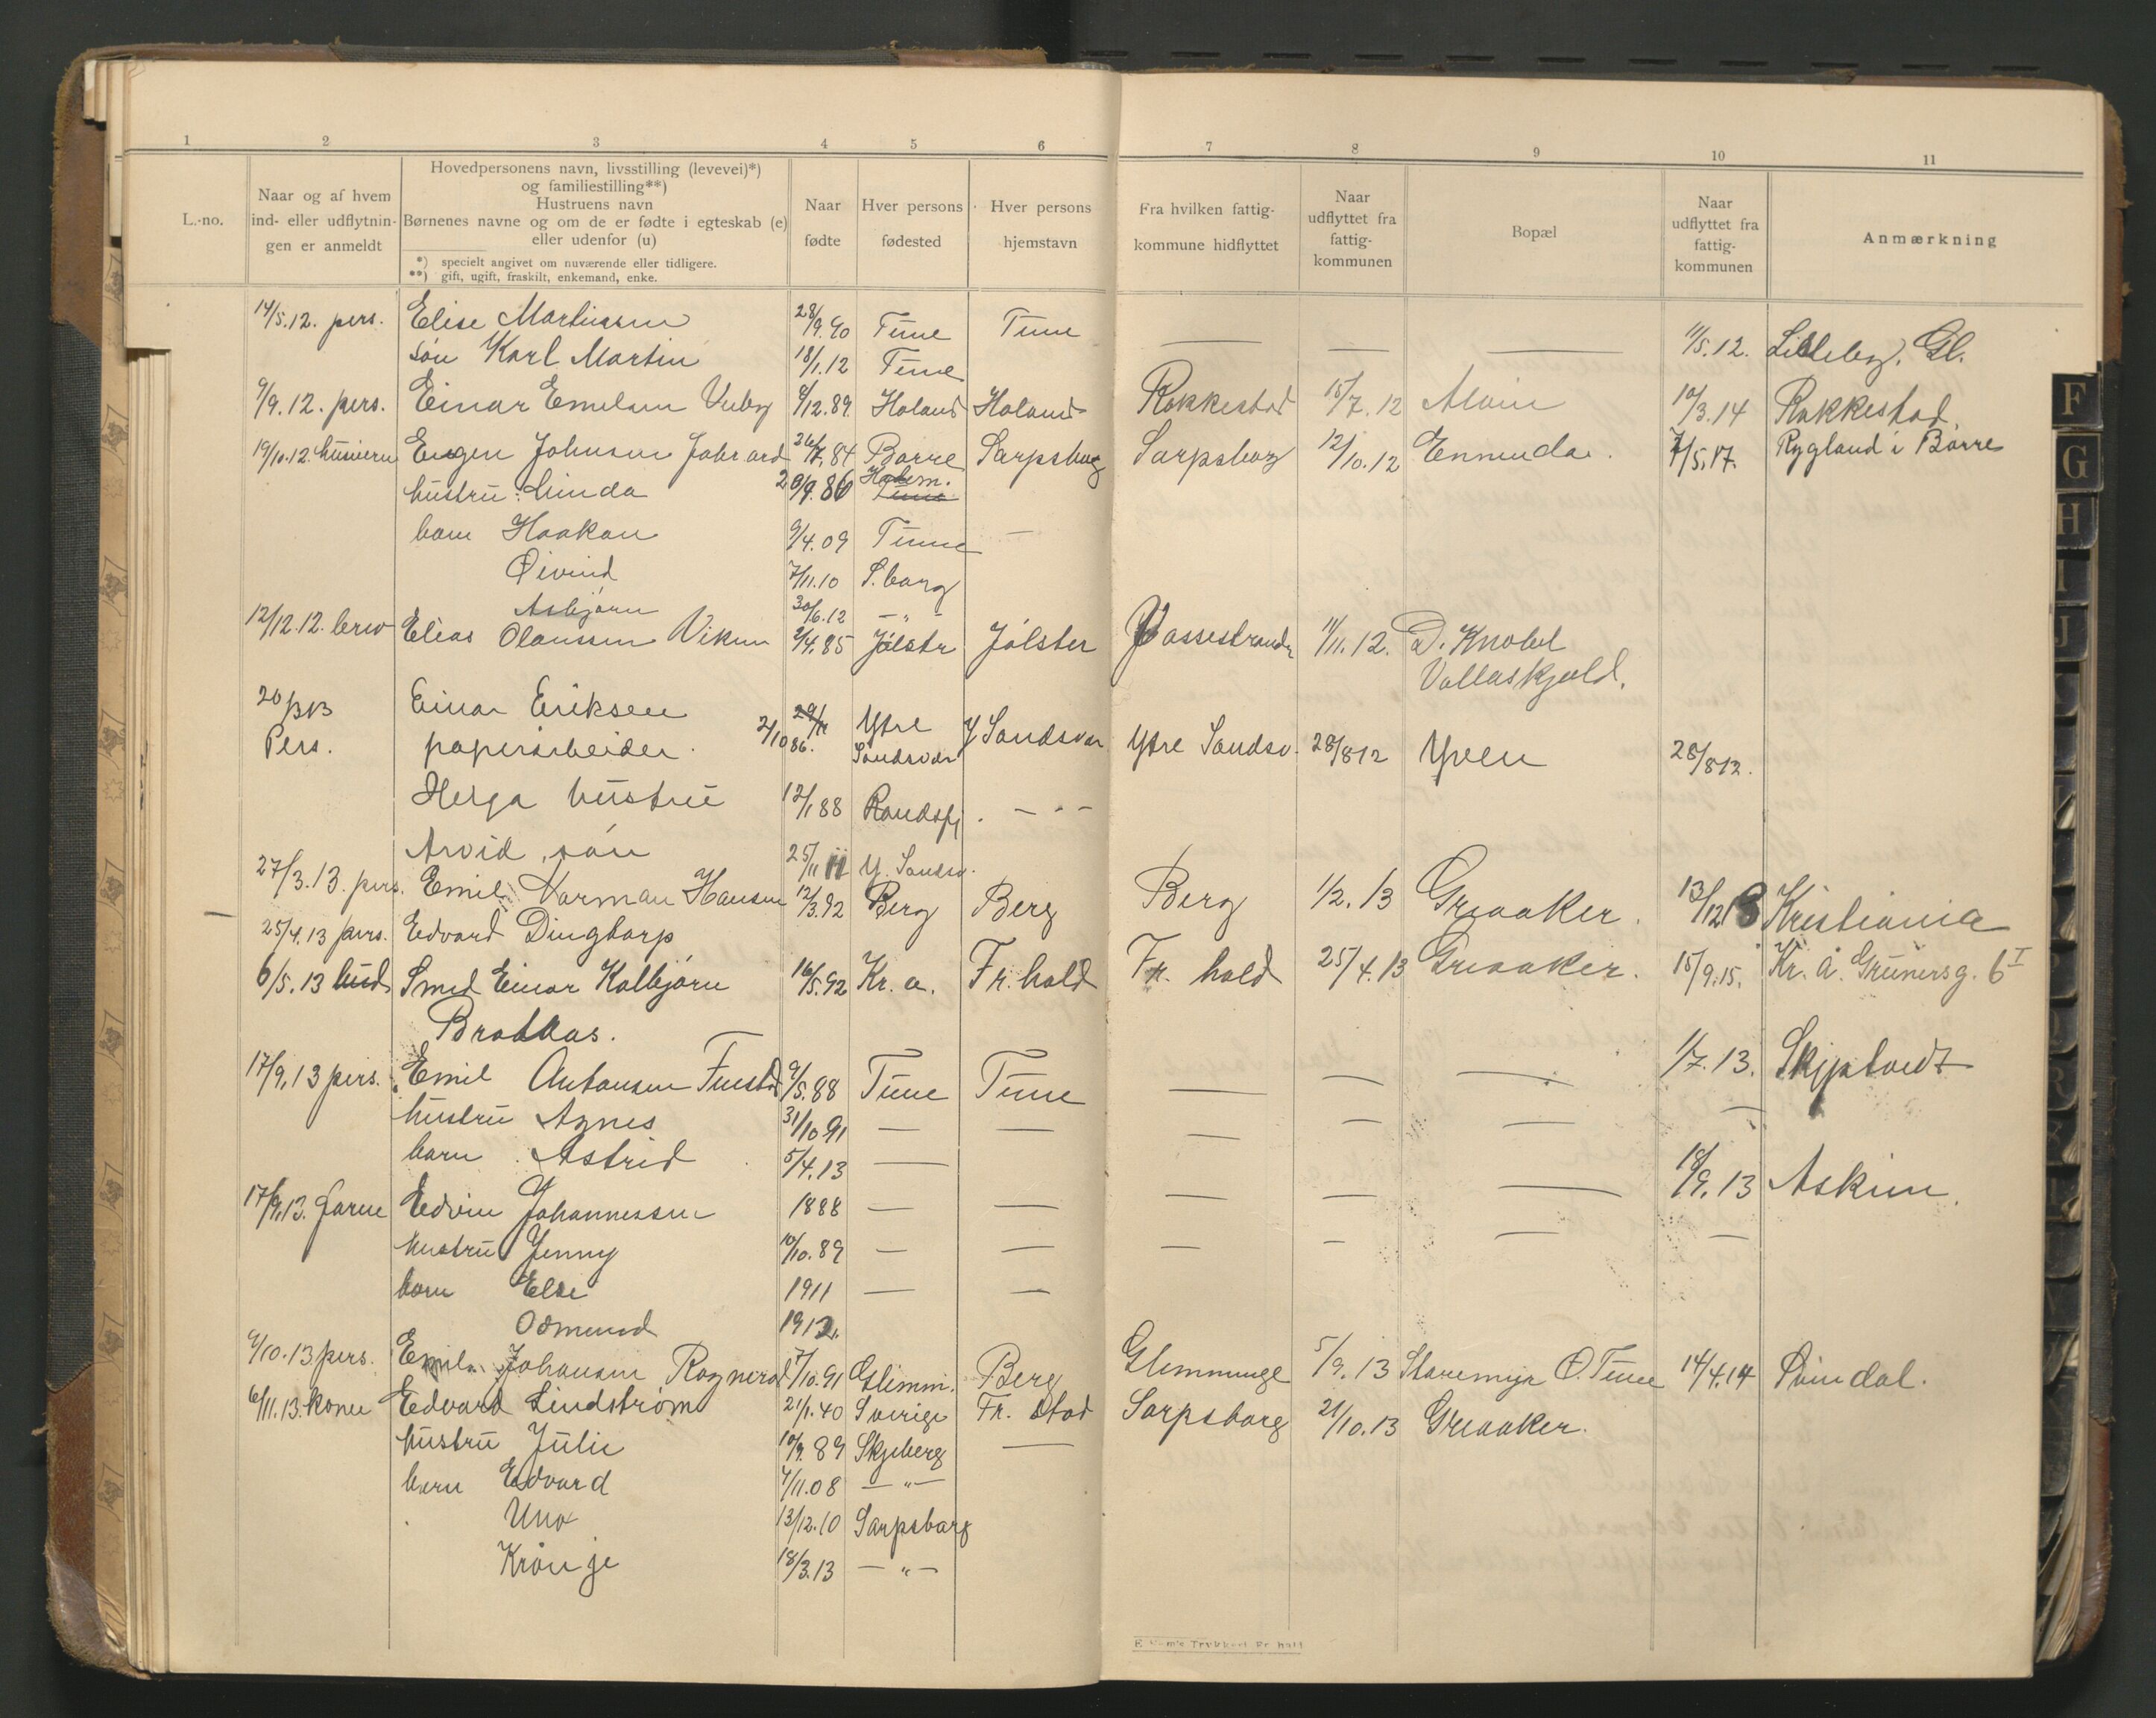 1 2 3 4 5 6 7 8 9 10 11
L.-no.
Naar og af hvem
ind- eller udflytnin-
gen er anmeldt
Hovedpersonens navn, livsstilling (levevei)*)
og familiestilling**)
Hustruens navn
Børnenes navne og om de er fødte i egteskab (e)
eller udenfor (u)
*) specielt angivet om nuværende eller tidligere.
**) gift, ugift, fraskilt, enkemand, enke.
Naar
fødte
Hver persons
fødested
Hver persons
hjemstavn
Fra hvilken fattig-
kommune hidflyttet
Naar
udflyttet fra
fattig-
kommunen
Bopæl
Naar
udflyttet fra
fattig-
kommunen
Anmærkning
14/5.12. pers. Elise Martinsen 28/9.90 Tune Tune — — — 11/5.12. Lilleby, Gl.
søn Karl Martin 18/1.12 Tune
9/9.12. pers. Einar Emelsen 9/12.89 Høland Høland Rakkestad 15/7.12 Alvim 10/3.14 Rakkestad.
19/10.12. Eugen Johnsen 84 Borre Sarpsborg Sarpsborg 12/10.12 Enenda. 7/5.17. Rygland i Borre
hustru: Linda 20/9.86 Halem. Tune
barn Haakon 9/4.09 Tune —
Øivind 7/11.10 S.borg
Asbjørn 30/6.12 — " —
12/12.12. brev Elias Olaussen Viken 2/4.85 Jølstr Jølster 11/11.12. D. Knobel
Vallaskjold.
20/3 13 Einar Eriksen 29/11 Ytre Y Sandsvær Ytre Sandsv. 28/8 12 Yven 28/8 12.
Pers. papirarbeider. 2/10 86. Sandsvær
Helga hustru 12/1 88 Randsfj. — " —
Arvid, søn 25/11 11 Y. Sandsv.
27/3.13. pers. Emil Norman Hansen 12/3.92 Berg Berg Berg 1/2.13 Greaaker. 13/12 13 Kristiania
25/4.13 pers. Edvard Dingtorp
6/5.13 Smed Einar Kolbjørn 16/5.92 Kr.a. Fr.hald Fr. hald 25/4.13 Greaaker. 15/9.15. Kr.a. Grünersg. 6 I
Brattaas.
17/9.13 pers. Emil Antonsen 9/5.88 Tune Tune — — — 1/7.13. Skjptvedt
hustru Agnes 31/10 91 — — — — — —
barn Astrid 5/4.13 —
17/9.13. Edvin Johannessen 1888 — — — — — 18/9.13 Askim.
hustru Jenny 10/10.89 — — — — — —
barn Else 1911 — —
Odmund 1912.
9/10.13 pers. Emil Johansen Ragnerød 7/10.91 Glemm. Berg Glemminge 5/9.13 Ø. Tune 14/4.14 Svindal.
6/11.13. konen Edvard Lindstrøm 21/1.40 Sverige Fr. stad Sarpsborg 21/10.13 Greaaker.
hustru Julie 10/9.89 Skjeberg —
barn Edvard 4/11.08 — " —
Uno 13/12.10 Sarpsborg
Krönje 18/3.13 — " —
F
G
H
I
J
K